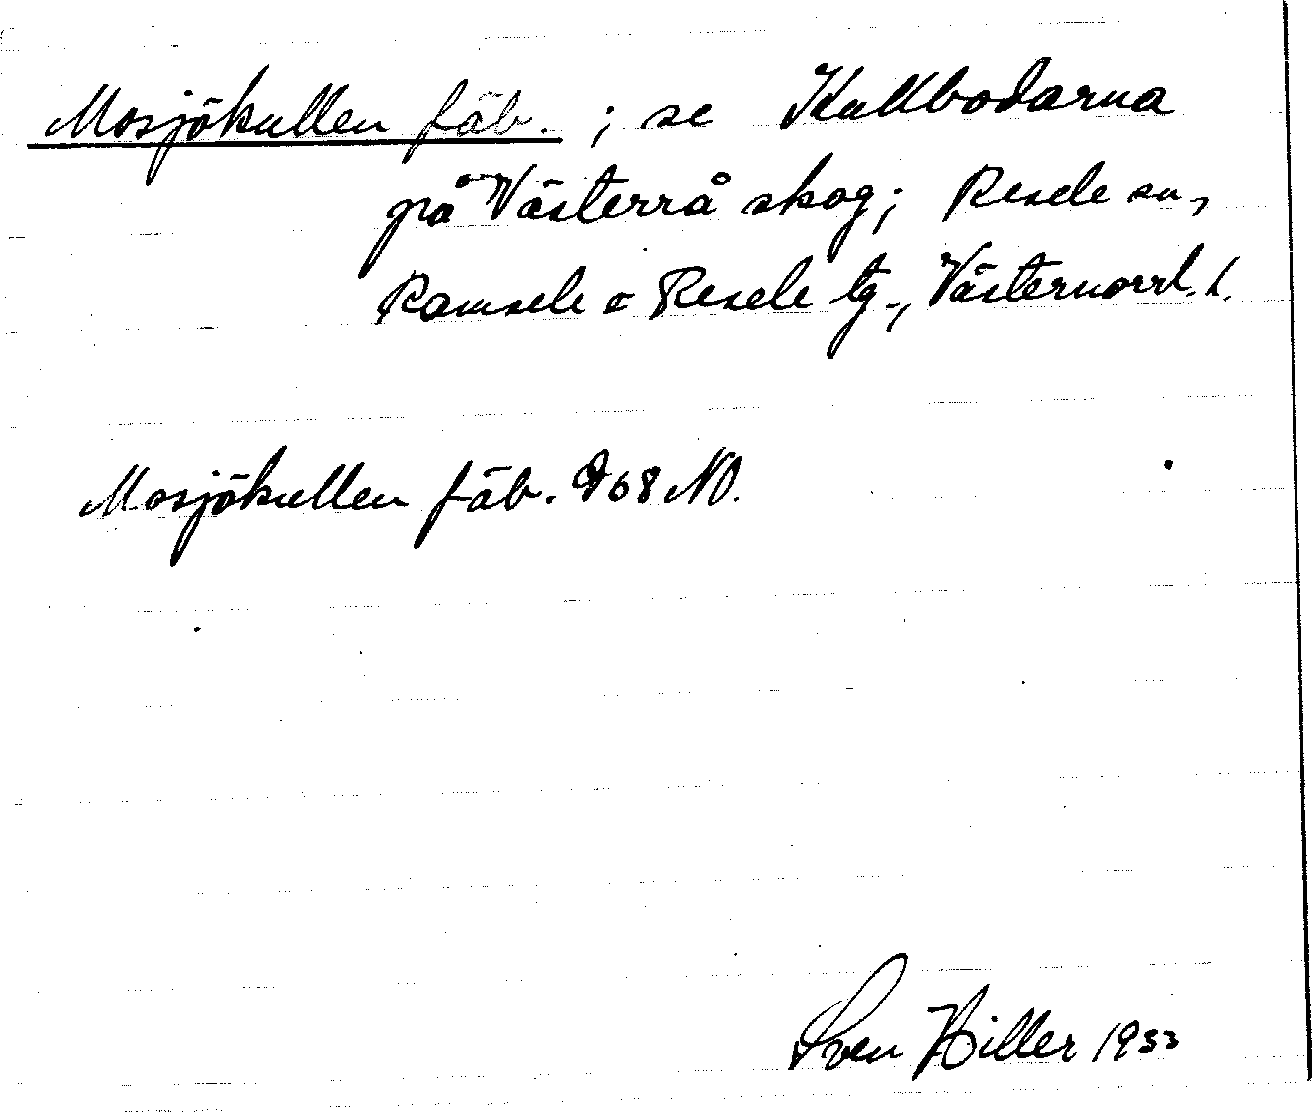 Mosjökullen fäb. ; se Kullbodarna
på Västerrå skog; Resele sn,
Ramsele o Resele tg., Västernorrl. l.
Mosjökullen fäb. G 68 NO.
Sven Hiller 1933